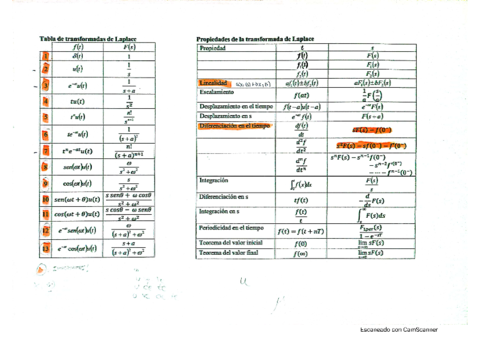 Tabla de transformadas de Laplace
f(t) F(s)
1 δ(t) 1
2 u(t) 1/s
3 e^-at u(t) 1/(s+a)
4 tu(t) 1/s^2
5 t^n u(t) n!/s^(n+1)
6 te^-at u(t) 1/(s+a)^2
7 t^n e^-at u(t) n!/(s+a)^(n+1)
8 sen(ωt)u(t) ω/(s^2+ω^2)
9 cos(ωt)u(t) s/(s^2+ω^2)
10 sen(ωt+θ)u(t) (s senθ + ω cosθ)/(s^2+ω^2)
11 cos(ωt+θ)u(t) (s cosθ − ω senθ)/(s^2+ω^2)
12 e^-at sen(ωt)u(t) ω/((s+a)^2+ω^2)
13 e^-at cos(ωt)u(t) (s+a)/((s+a)^2+ω^2)
Propiedades de la transformada de Laplace
Propiedad t s
f(t) F(s)
f₁(t) F₁(s)
f₂(t) F₂(s)
Linealidad af₁(t)±bf₂(t) aF₁(s)±bF₂(s)
Escalamiento f(at) 1/a F(s/a)
Desplazamiento en el tiempo f(t−a)u(t−a) e^-as F(s)
Desplazamiento en s e^-at f(t) F(s+a)
Diferenciación en el tiempo df(t)/dt sF(s) − f(0⁻)
d²f/dt² s²F(s) − sf(0⁻) − f'(0⁻)
d^n f/dt^n s^n F(s) − s^(n-1) f(0⁻)
− s^(n-2) f'(0⁻)
− ⋯ − f^(n-1)(0⁻)
Integración ∫f(s)ds F(s)/s
Diferenciación en s tf(t) −d/ds F(s)
Integración en s f(t)/t ∫F(s)ds
Periodicidad en el tiempo f(t) = f(t+nT) F₁per(s)/(1−e^-sT)
Teorema del valor inicial f(0) lim sF(s)
Teorema del valor final f(∞) lim sF(s)
Escaneado con CamScanner